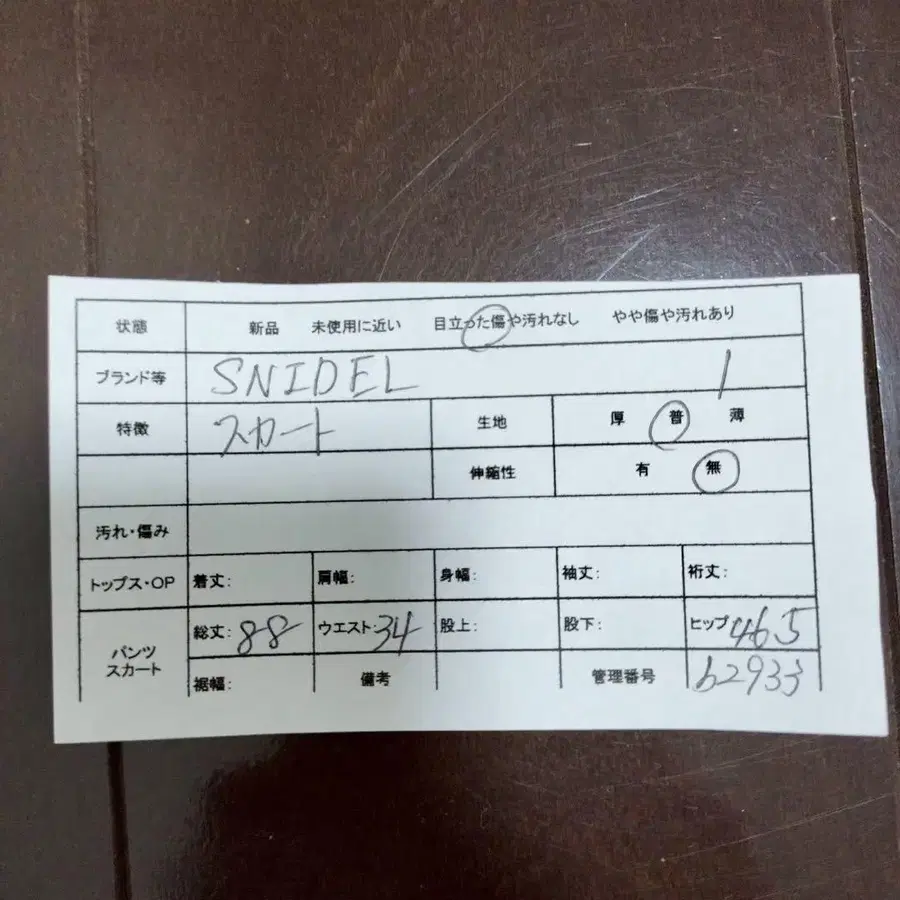 状態 新品 未使用に近い 目立った傷や汚れなし やや傷や汚れあり
ブランド等 SNIDEL 1
特徴 スカート 生地 厚 普 薄
伸縮性 有 無
汚れ・傷み
トップス・OP 着丈: 肩幅: 身幅: 袖丈: 裄丈:
パンツ スカート 総丈: 88 ウエスト: 34 股上: 股下: ヒップ 46.5
裾幅: 備考 管理番号 b2933